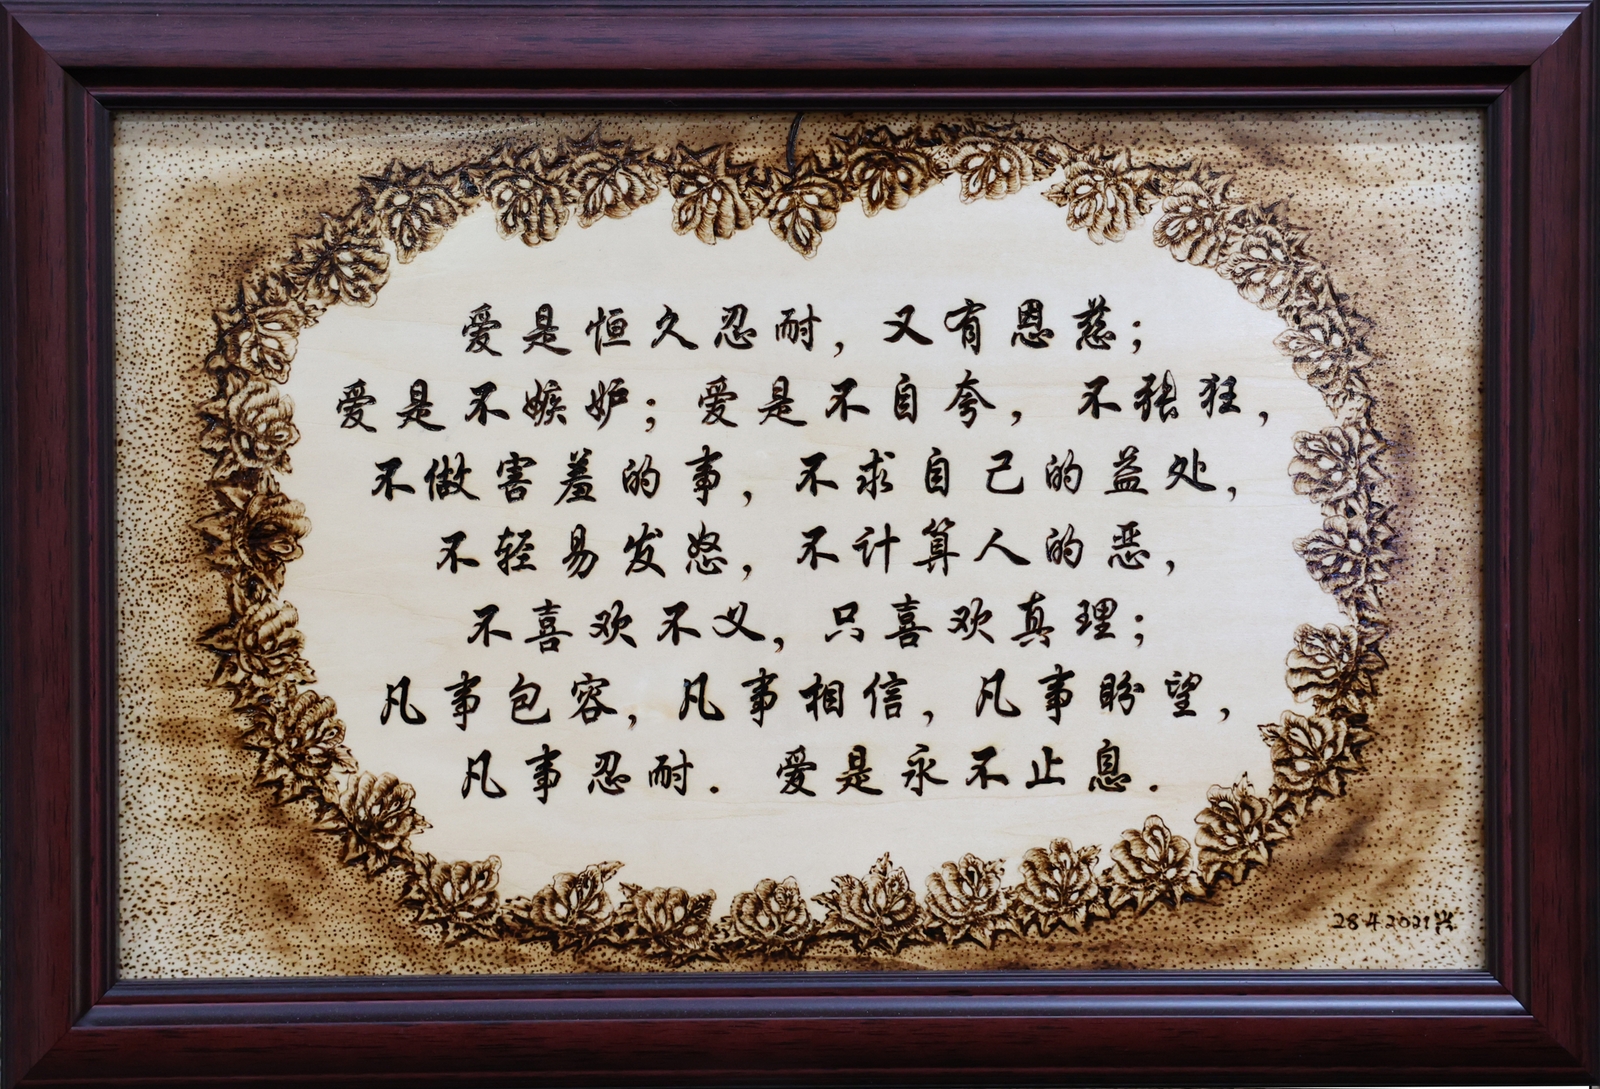 爱是恒久忍耐，又有恩慈；
爱是不嫉妒；爱是不自夸，不张狂，
不做害羞的事，不求自己的益处，
不轻易发怒，不计算人的恶，
不喜欢不义，只喜欢真理；
凡事包容，凡事相信，凡事盼望，
凡事忍耐．爱是永不止息．
28.4.2021